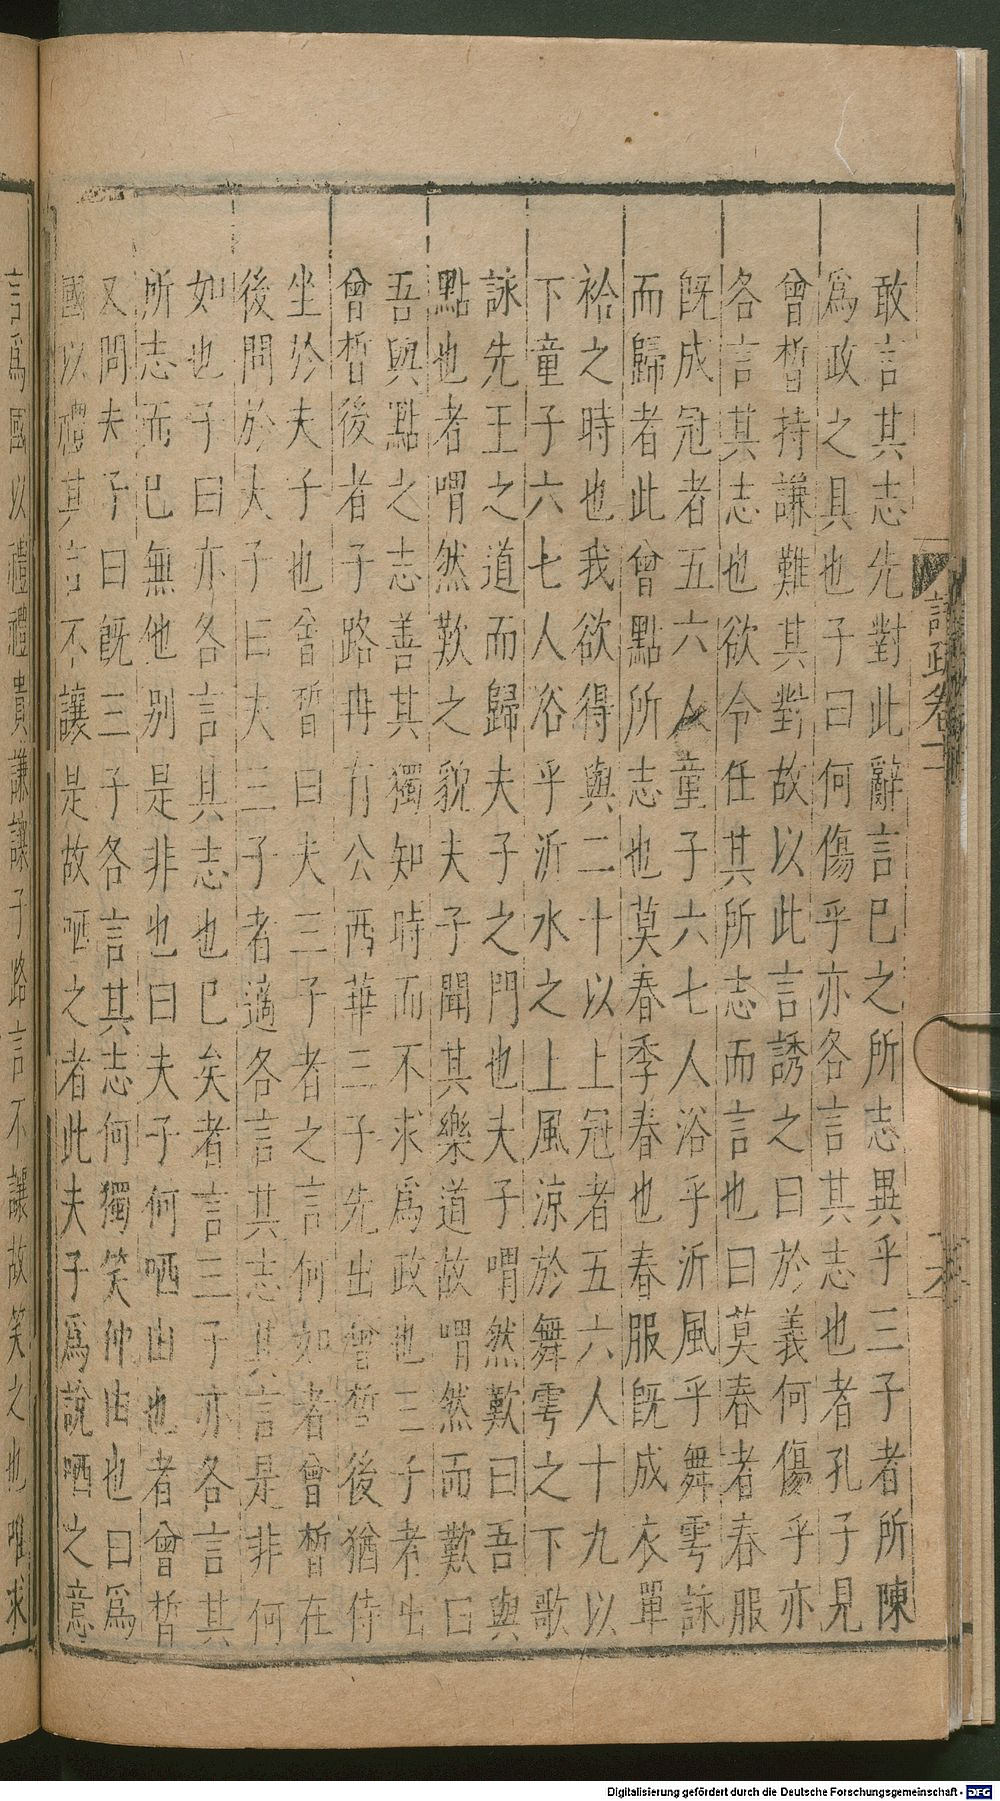 敢言其志先對此辭言已之所志異乎三子者所陳
爲政之具也子曰何傷乎亦各言其志也者孔子見
曾晳持謙難其對故以此言誘之曰於義何傷乎亦
各言其志也欲令任其所志而言也曰莫春者春服
旣成冠者五六人童子六七人浴乎沂風乎舞雩詠
而歸者此曾點所志也莫春季春也春服旣成衣單
袷之時也我欲得與二十以上冠者五六人十九以
下童子六七人浴乎沂水之上風涼於舞雩之下歌
詠先王之道而歸夫子之門也夫子喟然歎曰吾與
點也者喟然歎之貌夫子聞其樂道故喟然而歎曰
吾與點之志善其獨知時而不求爲政也三子者出
曾晳後者子路冉有公西華三子先出曾晳後猶侍
坐於夫子也曾晳曰夫三子者之言何如者曾晳在
後問於夫子曰夫三子者適各言其志其言是非何
如也子曰亦各言其志也已矣者言三子亦各言其
所志而已無他別是非也曰夫子何哂由也者曾晳
又問夫子曰旣三子各言其志何獨笑仲由也曰爲
國以禮其言不讓是故哂之者此夫子爲說哂之意
言爲國以禮禮貴謙讓子路言不讓故笑之也唯求
註疏卷十一
Digitalisierung gefördert durch die Deutsche Forschungsgemeinschaft - DFG